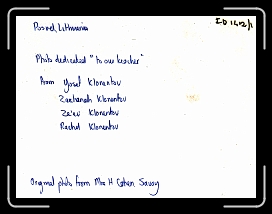 ID 1212/1
Posvol, Lithuania
Photo dedicated "to our teacher"
from Yosef Klorentov
Zecharıah Klonentov
Ze'ev Klonentov
Rachel Klonentov
Original photo from Mrs H Cohen Savoy